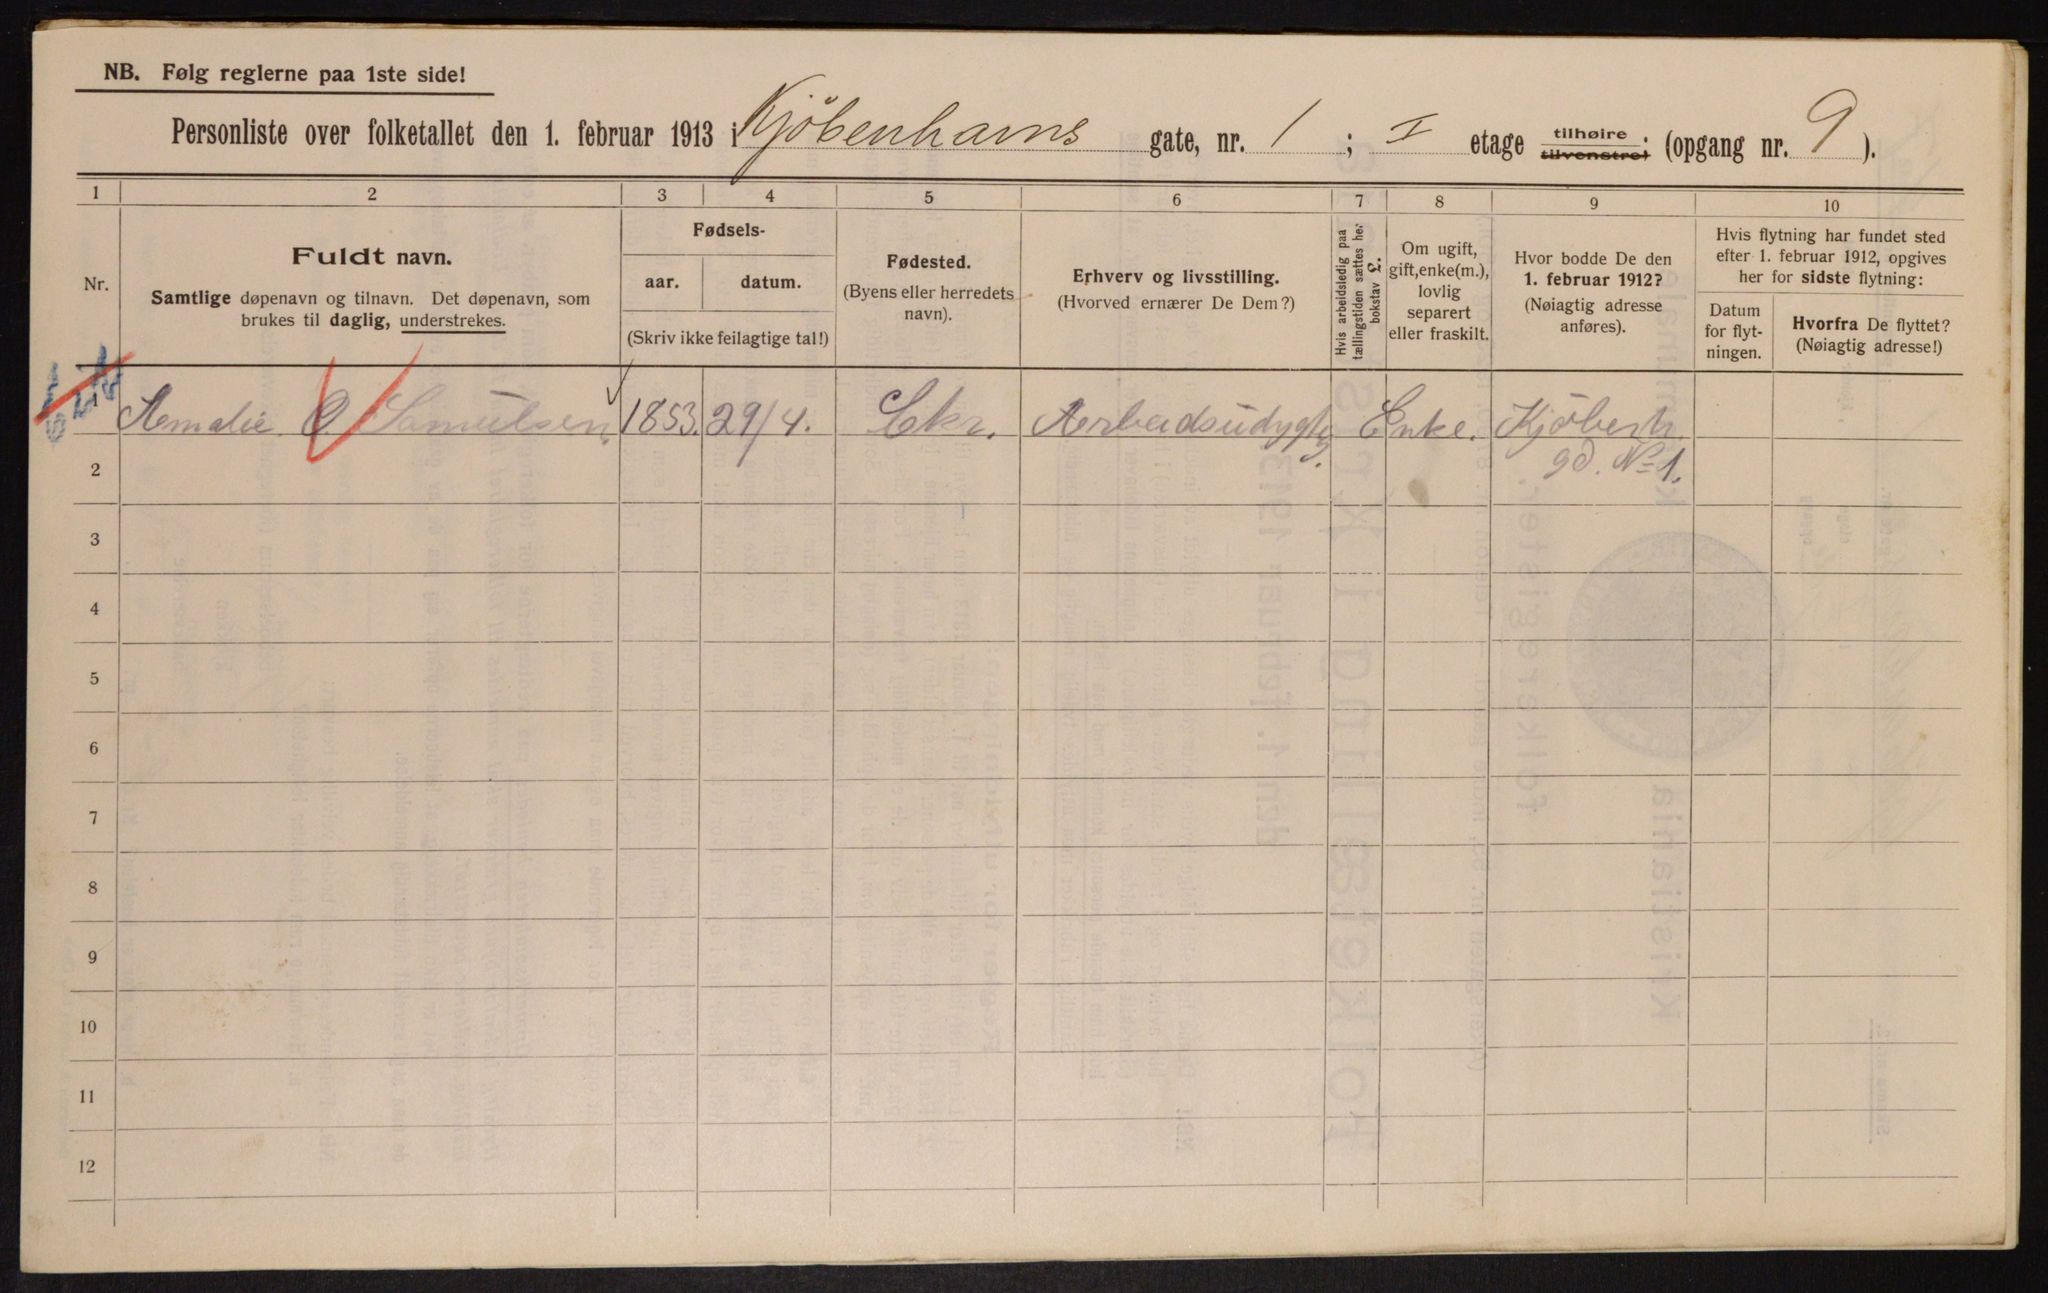 NB. Følg reglerne paa 1ste side!
Personliste over folketallet den 1. februar 1913 i Kjöbenhavns gate, nr. 1 ; I etage tilhøire tilvenstre; (opgang nr. 9 ).
1 2 3 4 5 6 7 8 9 10
Nr.
Fuldt navn.
Samtlige døpenavn og tilnavn. Det døpenavn, som
brukes til daglig, understrekes.
Fødsels-
aar. datum.
(Skriv ikke feilagtige tal!)
Fødested.
(Byens eller herredets
navn).
Erhverv og livsstilling.
(Hvorved ernærer De Dem?)
Hvis arbeidsledig paa
tællingstiden sættes her
bokstav L.
Om ugift,
gift, enke(m.),
lovlig
separert
eller fraskilt.
Hvor bodde De den
1. februar 1912?
(Nøiagtig adresse
anføres).
Hvis flytning har fundet sted
efter 1. februar 1912, opgives
her for sidste flytning:
Datum
for flyt-
ningen.
Hvorfra De flyttet?
(Nøiagtig adresse!)
1 Amalie O Samuelsen 1853. 29/4. Chr. Arbeidsudygtig. Enke. Kjöbenh.
gd. No 1.
2
3
4
5
6
7
8
9
10
11
12